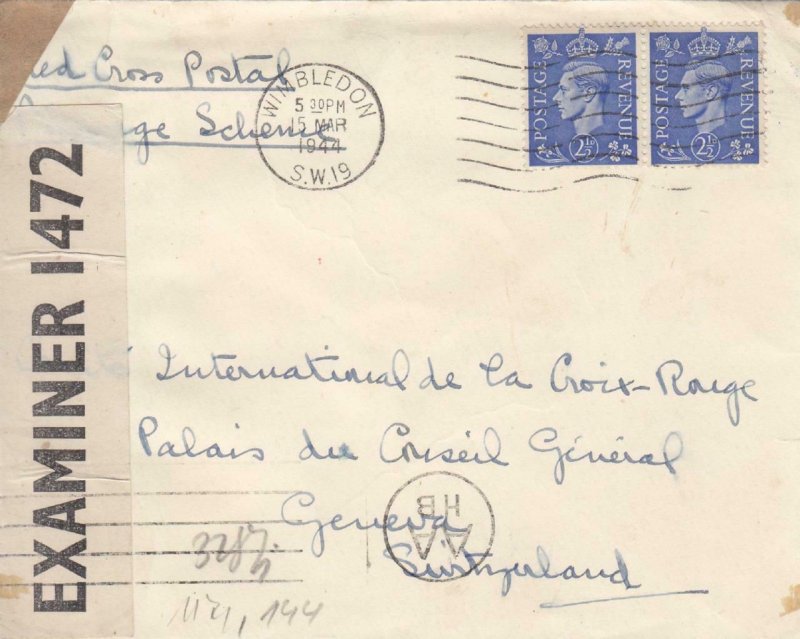 Red Cross Postal
Scheme
WIMBLEDON
5 30PM
15 MAR
1944
S.W.19
POSTAGE REVENUE
2½D
POSTAGE REVENUE
2½D
EXAMINER 1472
International de la Croix-Rouge
Palais du Conseil Général
Geneva
Switzerland
AA
HB